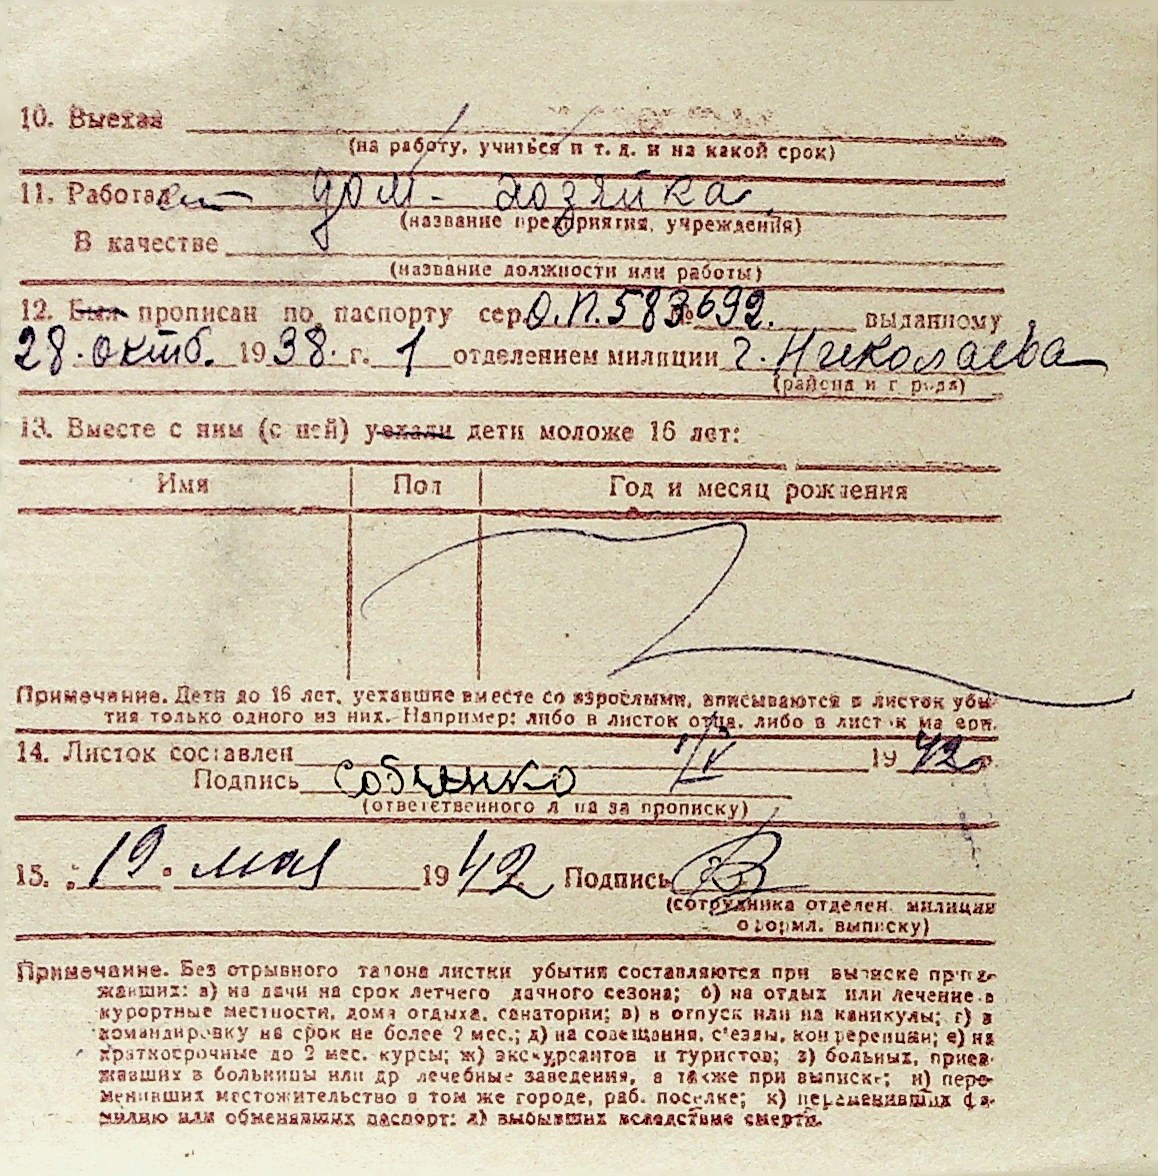 10. Выехал
(на работу, учиться и т. д. и на какой срок)
11. Работает дом. хозяйка
(название предприятия, учреждения)
В качестве
(название должности или работы)
12. Был прописан по паспорту сер. О.П. 583 № 692. выданному
28. октб. 1938. г. 1 отделением милиции г. Николаева
(района и города)
13. Вместе с ним (с ней) уехали дети моложе 16 лет:
Имя Пол Год и месяц рождения
Примечание. Дети до 16 лет, уехавшие вместе со взрослыми, вписываются в листок убы-
тия только одного из них. Например: либо в листок отца, либо в листок матери.
14. Листок составлен 1/V 1942
Подпись
(ответственного лица за прописку)
15. 19. мая 1942 Подпись
(сотрудника отделен. милиции
оформл. выписку)
Примечание. Без отрывного талона листки убытия составляются при выписке приез-
жавших: а) на дачи на срок летнего дачного сезона; б) на отдых или лечение в
курортные местности, дома отдыха, санатории; в) в отпуск или на каникулы; г) в
командировку на срок не более 2 мес.; д) на совещания, с'езды, конференции; е) на
краткосрочные до 2 мес. курсы; ж) экскурсантов и туристов; з) больных, приез-
жавших в больницы или др лечебные заведения, а также при выписке; и) пере-
менивших местожительство в том же городе, раб. поселке; к) переменивших фа-
милию или обменявших паспорт; л) выбывших вследствие смерти.